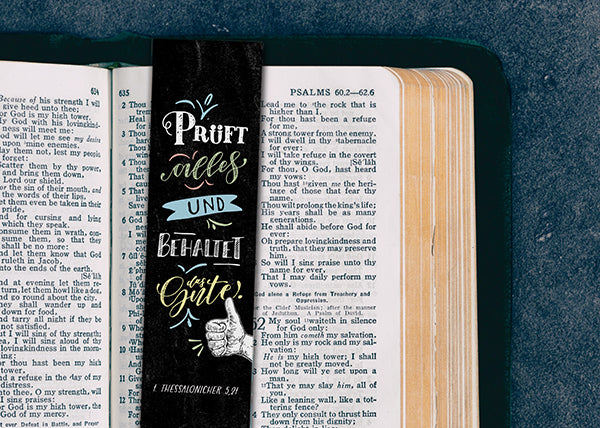 634
Because of his strength I will
give heed unto thee;
For God is my high tower.
My God with his lovingkind-
ness will meet me:
God will let me see my desire
upon mine enemies.
Slay them not, lest my people
forget:
Scatter them by thy power,
and bring them down,
Lord our shield.
For the sin of their mouth, and
the words of their lips,
Let them even be taken in their
pride,
And for cursing and lying
which they speak.
Consume them in wrath, con-
sume them, so that they
shall be no more:
And let them know that God
ruleth in Jacob,
Unto the ends of the earth.
[Sē'läh
And at evening let them re-
turn, let them howl like a dog,
And go round about the city.
They shall wander up and
down for food,
And tarry all night if they be
not satisfied.
But I will sing of thy strength;
Yea, I will sing aloud of thy
lovingkindness in the morn-
ing:
For thou hast been my high
tower,
And a refuge in the day of my
distress.
Unto thee, O my strength, will
I sing praises:
For God is my high tower, the
God of my mercy.
635
2 Thou
Heal
3 Thou
4 Thou
5 That
6 God
7
8
9
10
11 Give
12
PRÜFT
alles
UND
BEHALTET
das
Gute!
1. THESSALONICHER 5,21
PSALMS 60.2—62.6
Lead me to the rock that is
higher than I.
For thou hast been a refuge
for me,
A strong tower from the enemy.
I will dwell in thy tabernacle
for ever:
I will take refuge in the covert
of thy wings. [Sē'läh
For thou, O God, hast heard
my vows:
Thou hast given me the heri-
tage of those that fear thy
name.
Thou wilt prolong the king's life;
His years shall be as many
generations.
He shall abide before God for
ever:
Oh prepare lovingkindness and
truth, that they may preserve
him.
So will I sing praise unto thy
name for ever,
That I may daily perform my
vows.
God alone a Refuge from Treachery and
Oppression.
For the Chief Musician; after the manner
of Jeduthun. A Psalm of David.
62 My soul waiteth in silence
for God only:
From him cometh my salvation.
He only is my rock and my sal-
vation:
He is my high tower; I shall
not be greatly moved.
How long will ye set upon a
man,
That ye may slay him, all of
you,
Like a leaning wall, like a tot-
tering fence?
They only consult to thrust him
down from his dignity;